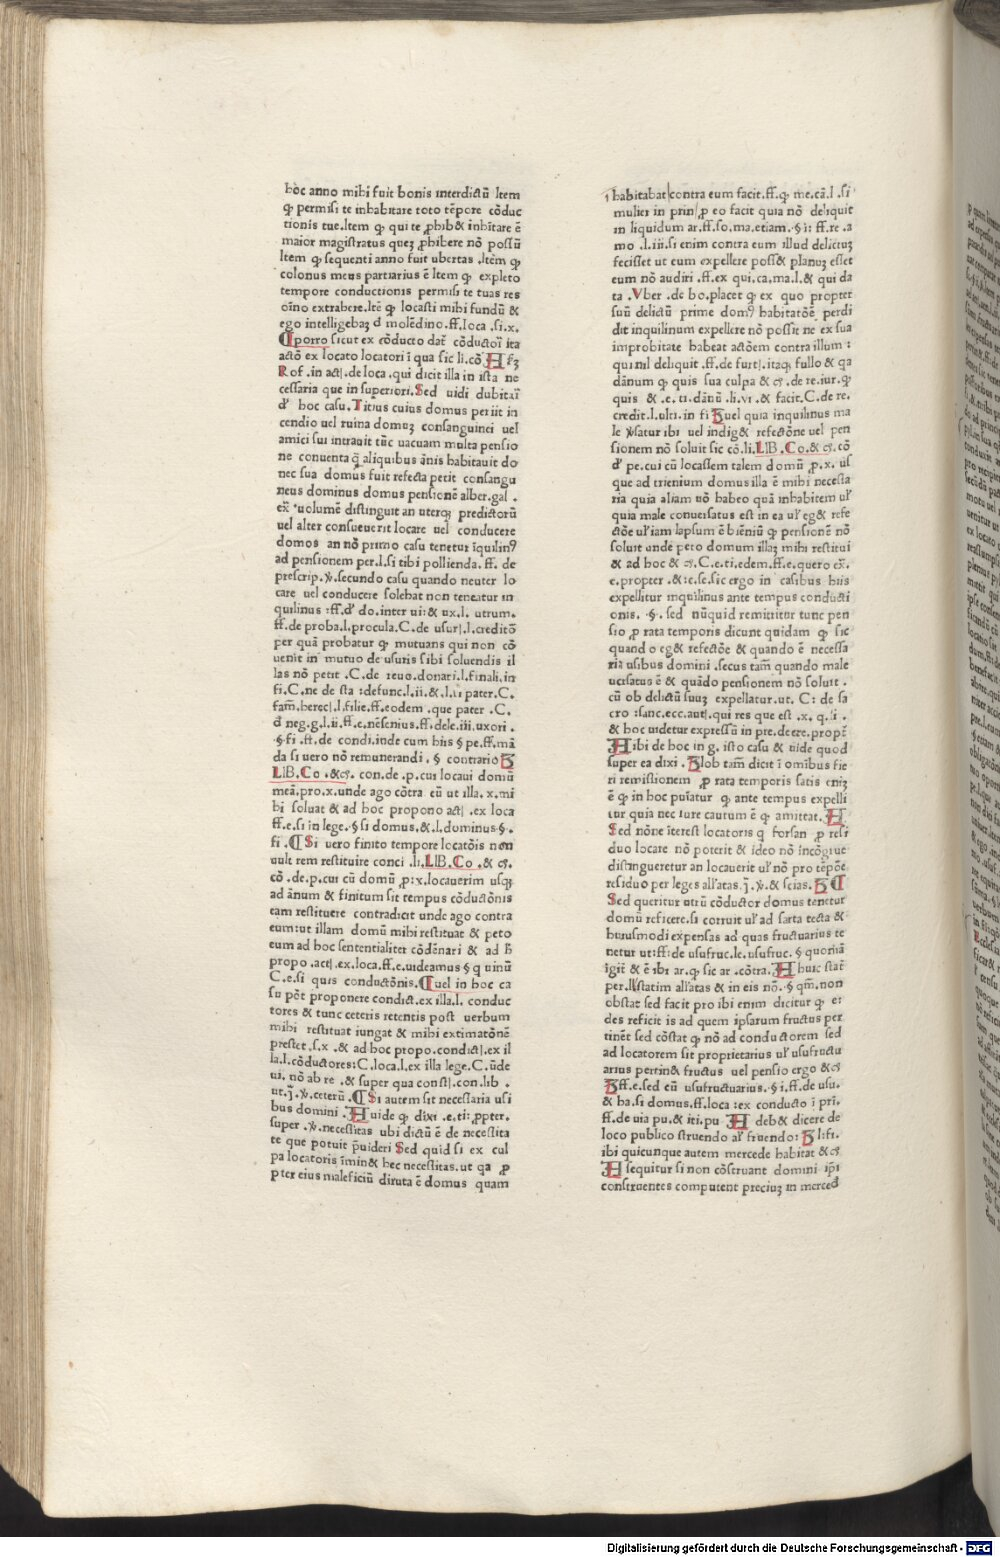 hoc anno mihi fuit bonis interdictū Item
ꝙ permisi te inhabitare toto tēpore cōduc
tionis tue.Item ꝙ qui te ꝓhib& inhītare ē
maior magistratus quez ꝓhibere nō possū
Item ꝙ sequenti anno fuit ubertas .Itēm ꝙ
colonus meus partiarius ē Item ꝙ expleto
tempore conductionis permisi te tuas res
oīno extrahere.Itē ꝙ locasti mihi fundū &
ego intelligebaz đ molēdino.ff.loca .si.x.
¶porro sicut ex cōducto dat̄ cōductoī ita
actō ex locato locatori ī qua sic li.cō
Rof .in act .de loca .qui dicit illa in ista ne
cessaria que in superiori.Sed uidi dubitaī
đ hoc casu.Titius cuius domus periit in
cendio uel ruina domuz consanguinei uel
amici sui intrauit tūc uacuam multa pensio
ne conuenta q̄ aliquibus ānis habitauit do
nec sua domus fuit refecta petit consangu
neus dominus domus pensionē alber.gal .
ex̄ uolumē distinguit an uterqꝫ predictorū
uel alter consueuerit locare uel conducere
domos an nō primo casu tenetur īquilinꝰ
ad pensionem per.l.si tibi pollienda.ff. de
prescrip.ꝟ.secundo casu quando neuter lo
care uel conducere solebat non teneatur in
quilinus :ff.đ do.inter ui:& ux.l. utrum.
ff.de proba.l.procula.C.de usur .l.creditō
per quā probatur ꝙ mutuans qui non cō
uenit in mutuo de usuris sibi soluendis il
las nō petit .C.de reuo.donari.l.finali.in
fi.C.ne de sta :defunc.l.ii.&.l.ii pater.C.
fam̄.herec .l.filie.ff.eodem .que pater .C.
đ neg.g.l.ii.ff.e.nēsenius.ff.dele.iii.uxori .
§fi .ff.de condi.inde cum hiis § pe.ff.mā
da si uero nō remunerandi . § contrario
LIB.Co .&c. con.de .p.cui locaui domū
meā.pro.x.unde ago cōtra eū ut illa.x.mi
hi soluat & ad hoc propono act .ex loca
ff.e.si in lege.§ si domus.&.l.dominus.§.
fi .¶Si uero finito tempore locatōis non
uult rem restituire conci .li.LIB.Co .&c.
cō .de.p.cui cū domū .p:x.locauerim usqꝫ
ad ānum & finitum sit tempus cōductōnis
eam restituere contradicit unde ago contra
eum:ut illam domū mihi restituat & peto
eum ad hoc sententialiter cōdēnari & ad h̄
propo .act .ex.loca.ff.e.uideamus § q uinū
C.e.si quis conductōnis.¶uel in hoc ca
su pōt proponere condict.ex illa.l. conduc
tores & tunc ceteris retentis post uerbum
mihi restituat iungat & mihi extimatōnē
prestet.s.x .& ad hoc propo.condict .ex il
la.l.cōductores:C.loca.l.ex illa lege.C.ūde
ui. nō ab re .& super qua const .con.lib .
ut.j̄.ꝟ.ceterū.¶Si autem sit necessaria usi
bus domini .Huide ꝙ dixi .e.ti:ꝓpter.
super .ꝟ.necessitas ubi dictū ē de necessita
te que potuit p̄uideri Sed quid si ex cul
pa locatoris īmin& hec necessitas.ut qa ꝓ
pter eius maleficiū diruta ē domus quam
habitabat contra eum facit.ff.ꝙ me.cā.l .si
mulier in prin ꝓ eo facit quia nō deliquit
in liquidum ar.ff.so.ma.etiam.§i: ff.re .a
mo .l.iii.si enim contra eum illud delictuꝫ
fecisset ut eum expellere poss& planuꝫ esset
eum nō audiri .ff.ex qui.ca.ma.l.& qui da
ta .Vber .de bo.placet ꝙ ex quo propter
suū delictū prime domꝰ habitatōē perdi
dit inquilinum expellere nō possit ne ex sua
improbitate habeat actōem contra illum :
qui nil deliquit .ff.de furt .itaqꝫ fullo & qa
dānum ꝙ quis sua culpa & c̄.de re.iur.ꝙ
quis & .e.ti.dānū .li.vi .& facit.C.de re.
credit.l.ulti.in fi uel quia inquilinus ma
le ꝟsatur ibi uel indig& refectōne uel pen
sionem nō soluit sic cō.li.LIB.Co.&c.cō
đ pe.cui cū locassem talem domū .p.x. us
que ad trienium domus illa ē mihi necessa
ria quia aliam nō habeo quā inhabitem uł
quia male conuersatus est in ea uł eg& refe
ctōe uł iam lapsum ē bieniū ꝙ pensionē nō
soluit unde peto domum illaꝫ mihi restitui
& ad hoc &c.C.e.ti.edem.ff.e.quero ex̄.
e.propter .&:e.se.sic ergo in casibus hiis
expellitur inquilinus ante tempus conducti
onis. .§. sed nūquid remittitur tunc pen
sio ꝓ rata temporis dicunt quidam ꝙ sic
quand o eg& refectōe & quando ē necessa
ria usibus domini .secus tam̄ quando male
uersatus ē & quādo pensionem nō soluit .
cū ob delictū suuꝫ expellatur.ut. C: de sa
cro :sanc.ecc.aut .qui res que est .x. q.ii .
& hoc uidetur expressū in pre.decre.propt̄
Hibi de hoc in g. isto casu & uide quod
super ea dixi . lob tam̄ dicit ī omībus fie
ri remissionem ꝓ rata temporis satis eniꝫ
ē ꝙ in hoc puīatur ꝙ ante tempus expelli
tur quia nec iure cautum ē ꝙ amittat.H
Sed nōne īterest locatoris q forsan ꝓ resi
duo locare nō poterit & ideo nō incōgrue
distingueretur an locauerit uł nō pro tēpōe
residuo per leges all'atas.j̄.ꝟ.& scias. ¶
Sed queritur utrū cōductor domus tenetur
domū reficere.si corruit uł ad sarta tecta &
huiusmodi expensas ad quas fructuarius te
netur ut:ff:de usufruc.le.usufruc. § quoniā
īgit & ē ibi ar.ꝙ sic ar .cōtra.Hhuic stat̄
per.ll.statim all'atas & in eis nō. § qm̄.non
obstat sed facit pro ibi enim dicitur ꝙ ei
des reficit is ad quem ipsarum fructus per
tinēt sed cōstat ꝙ nō ad conductorem sed
ad locatorem sit proprietarius uł usufructu
arius pertin& fructus uel pensio ergo &c
ff.e.sed eū usufructuarius.§i.ff.de usu.
& ha.si domus.ff.loca :ex conducto ī prī.
ff.de uia pu.& iti.pu .H deb& dicere de
loco publico struendo al' fruendo: l:fi.
ibi quicunque autem mercede habitat &c
H sequitur si non cōstruant domini ip̄i
construentes computent preciuꝫ in merced
Digitalisierung gefördert durch die Deutsche Forschungsgemeinschaft - DFG